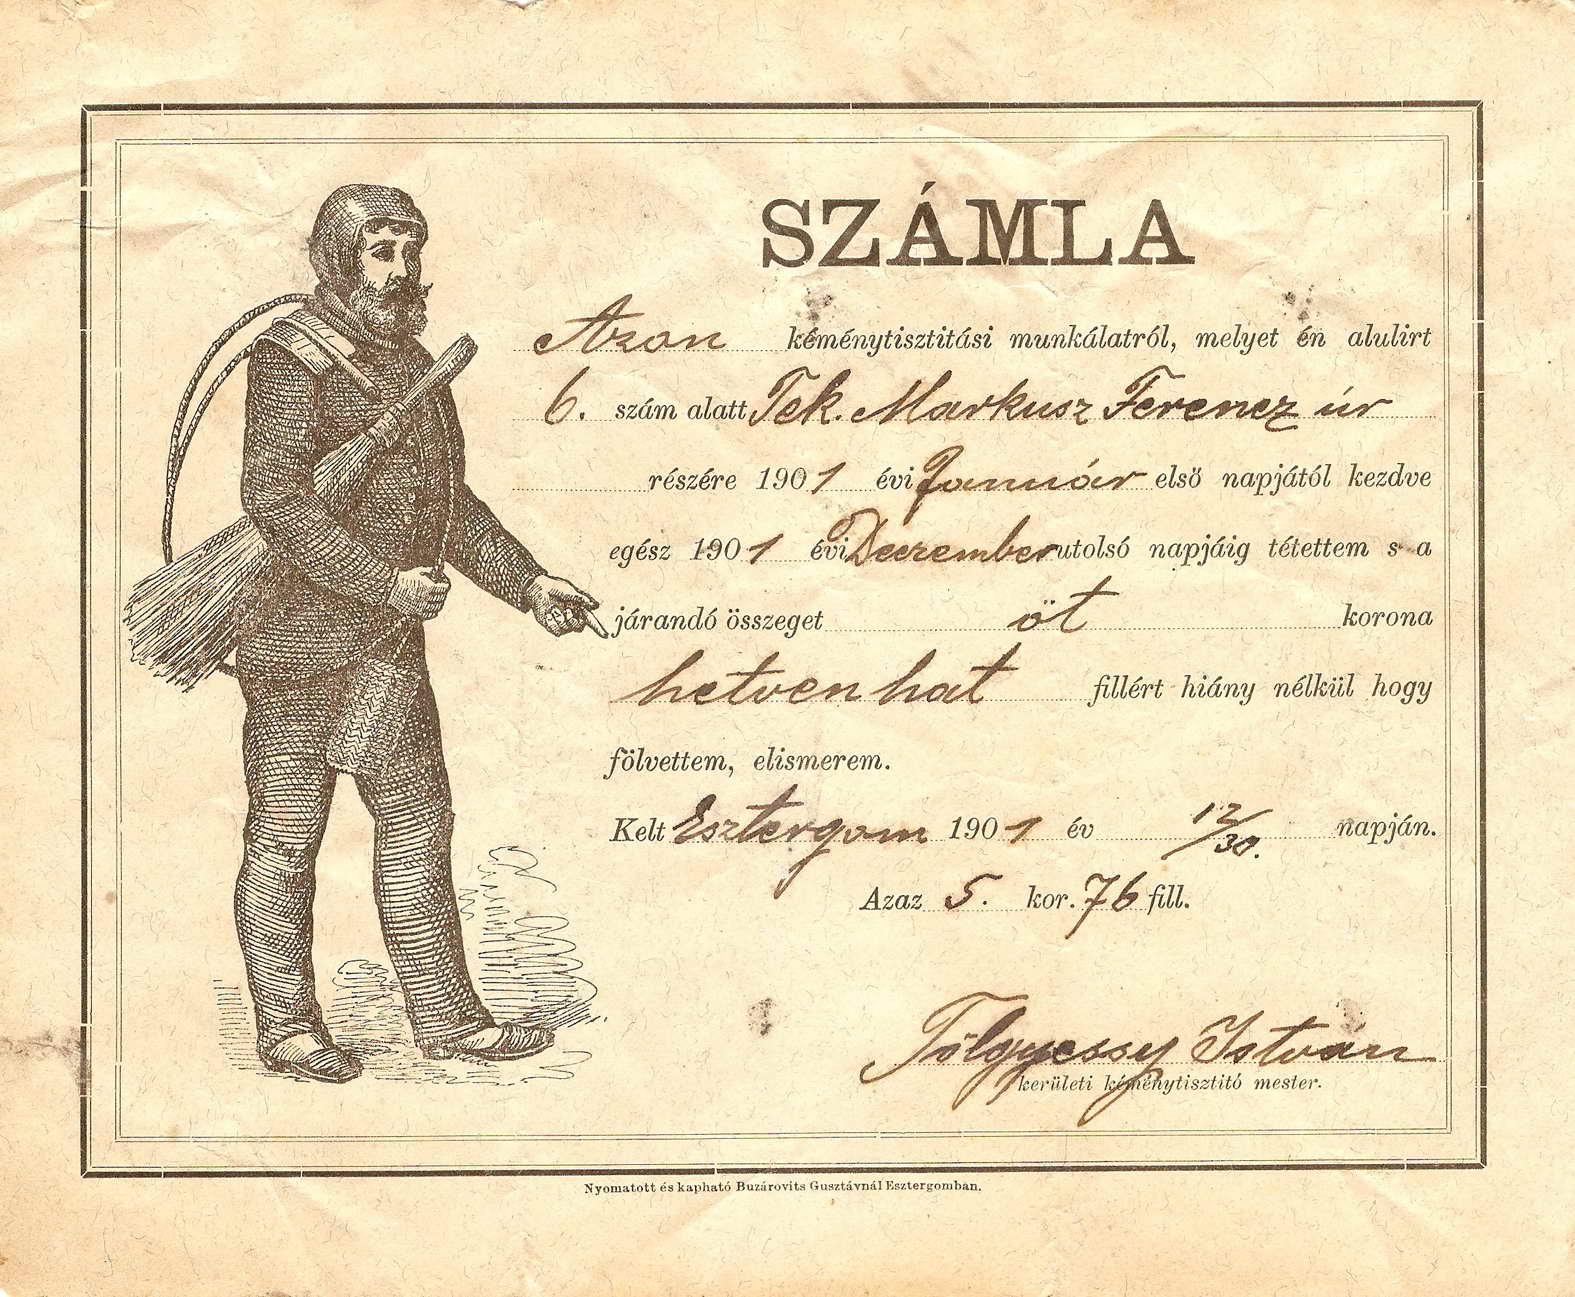 SZÁMLA
Azon kéménytisztitási munkálatról, melyet én alulirt
6. szám alatt Tek. Markusz Ferencz úr
részére 1901 évi Január első napjától kezdve
egész 1901 évi Deczember utolsó napjáig tétettem s a
járandó összeget öt korona
hetven hat fillért hiány nélkül hogy
fölvettem, elismerem.
Kelt Esztergom 1901 év 12/30. napján.
Azaz 5. kor. 76 fill.
Tölgyessy István
kerületi kéménytisztitó mester.
Nyomatott és kapható Buzárovits Gusztávnál Esztergomban.